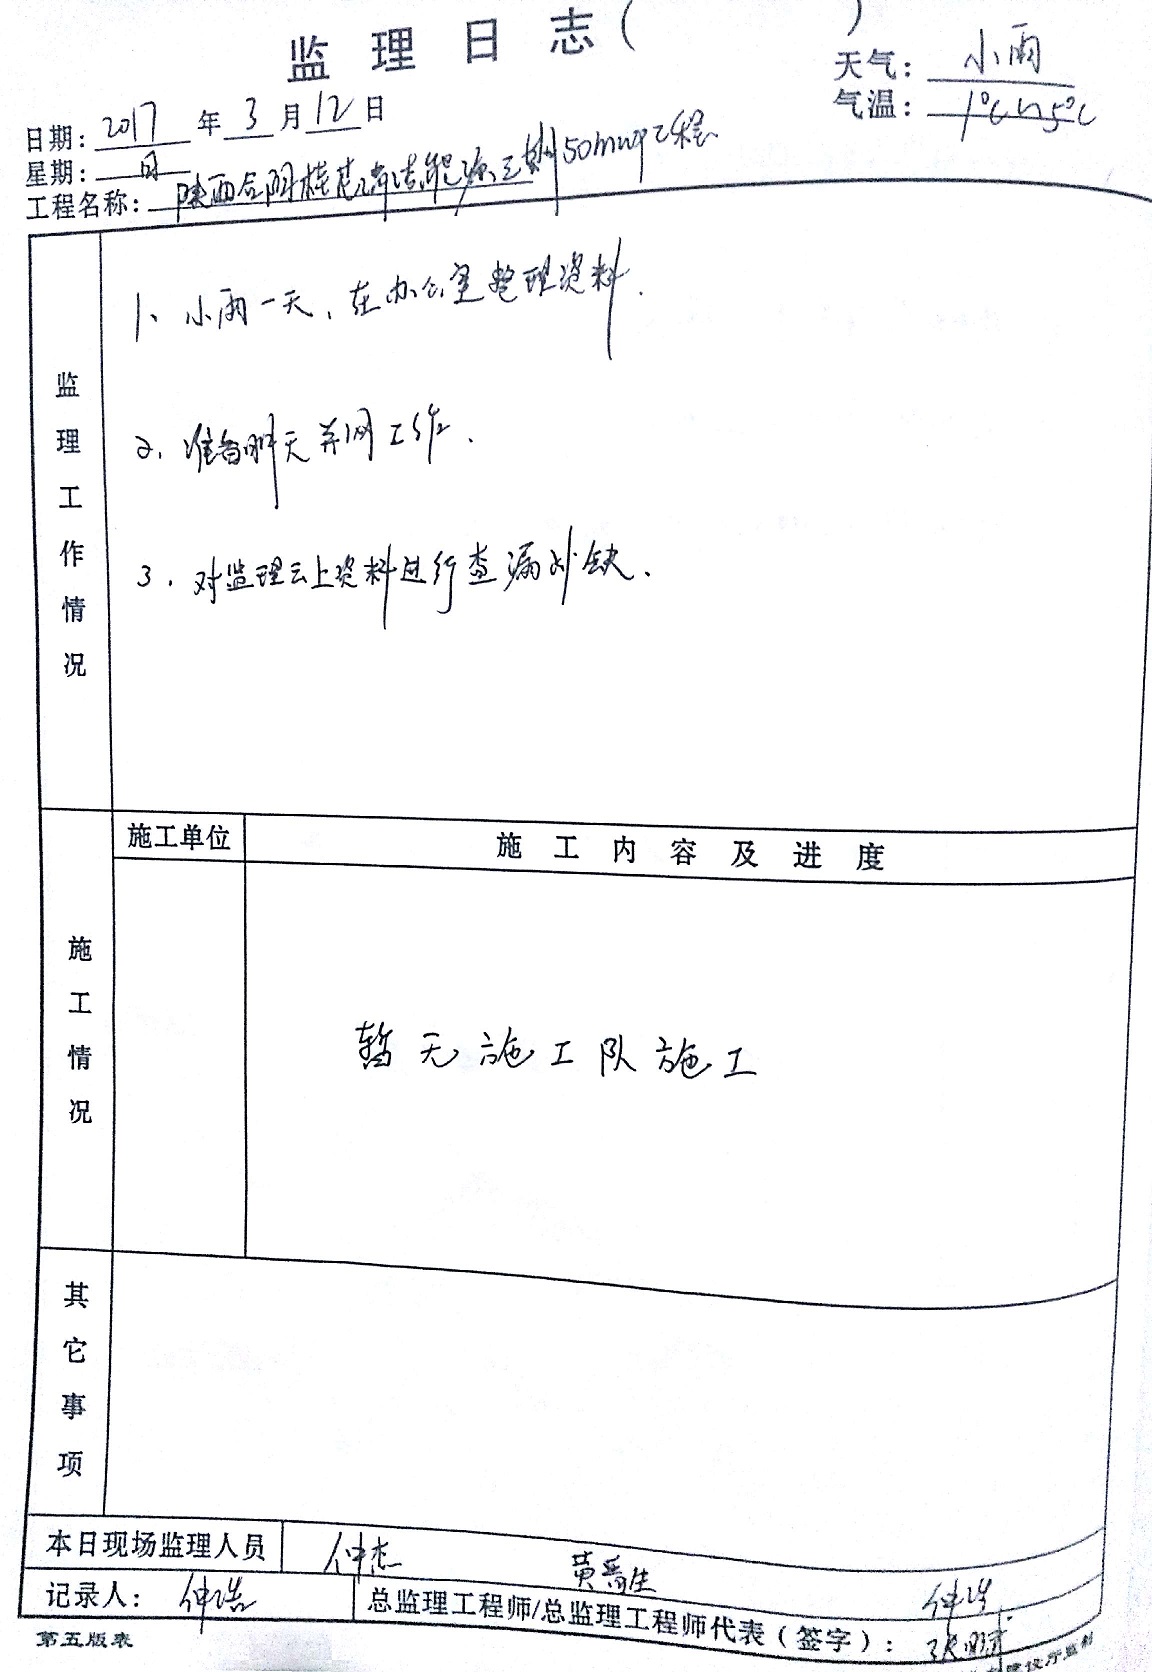 监理日志( )
天气: 小雨
气温: 1℃~5℃
日期: 2017年3月12日
星期: 日
工程名称: 陕西合阳 清洁能源三期50mwp工程
监理工作情况
1、小雨一天,在办公室整理资料.
2、准备明天并网工作.
3、对监理云上资料进行查漏补缺.
施工情况
施工单位
施工内容及进度
暂无施工队施工
其它事项
本日现场监理人员 仲杰 仲浩
记录人: 仲浩
总监理工程师/总监理工程师代表(签字):
第五版表
建设厅监制